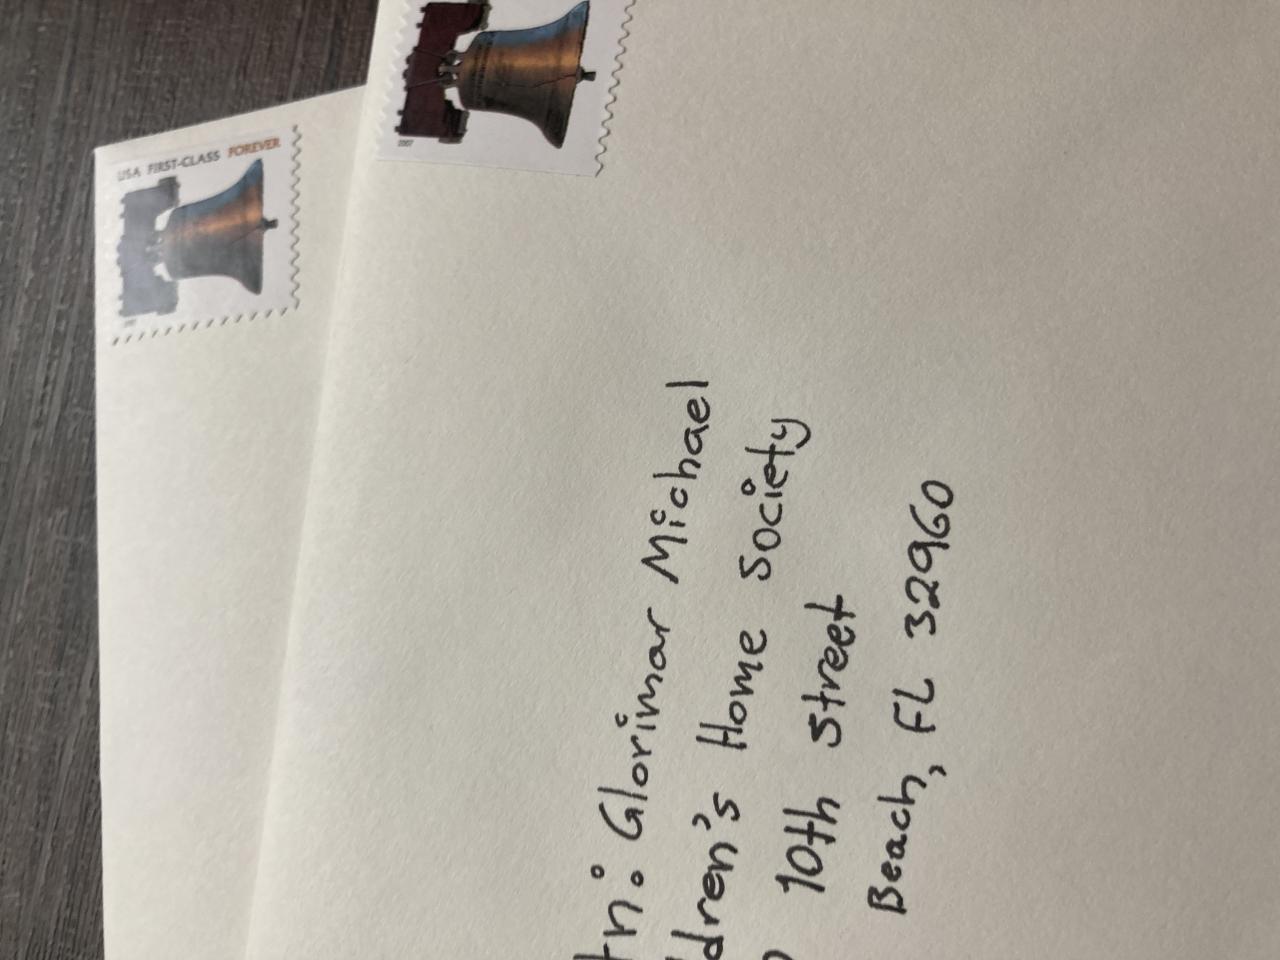 USA FIRST-CLASS FOREVER
2007
Glorimar Michael
Home Society
10th Street
Beach, FL 32960